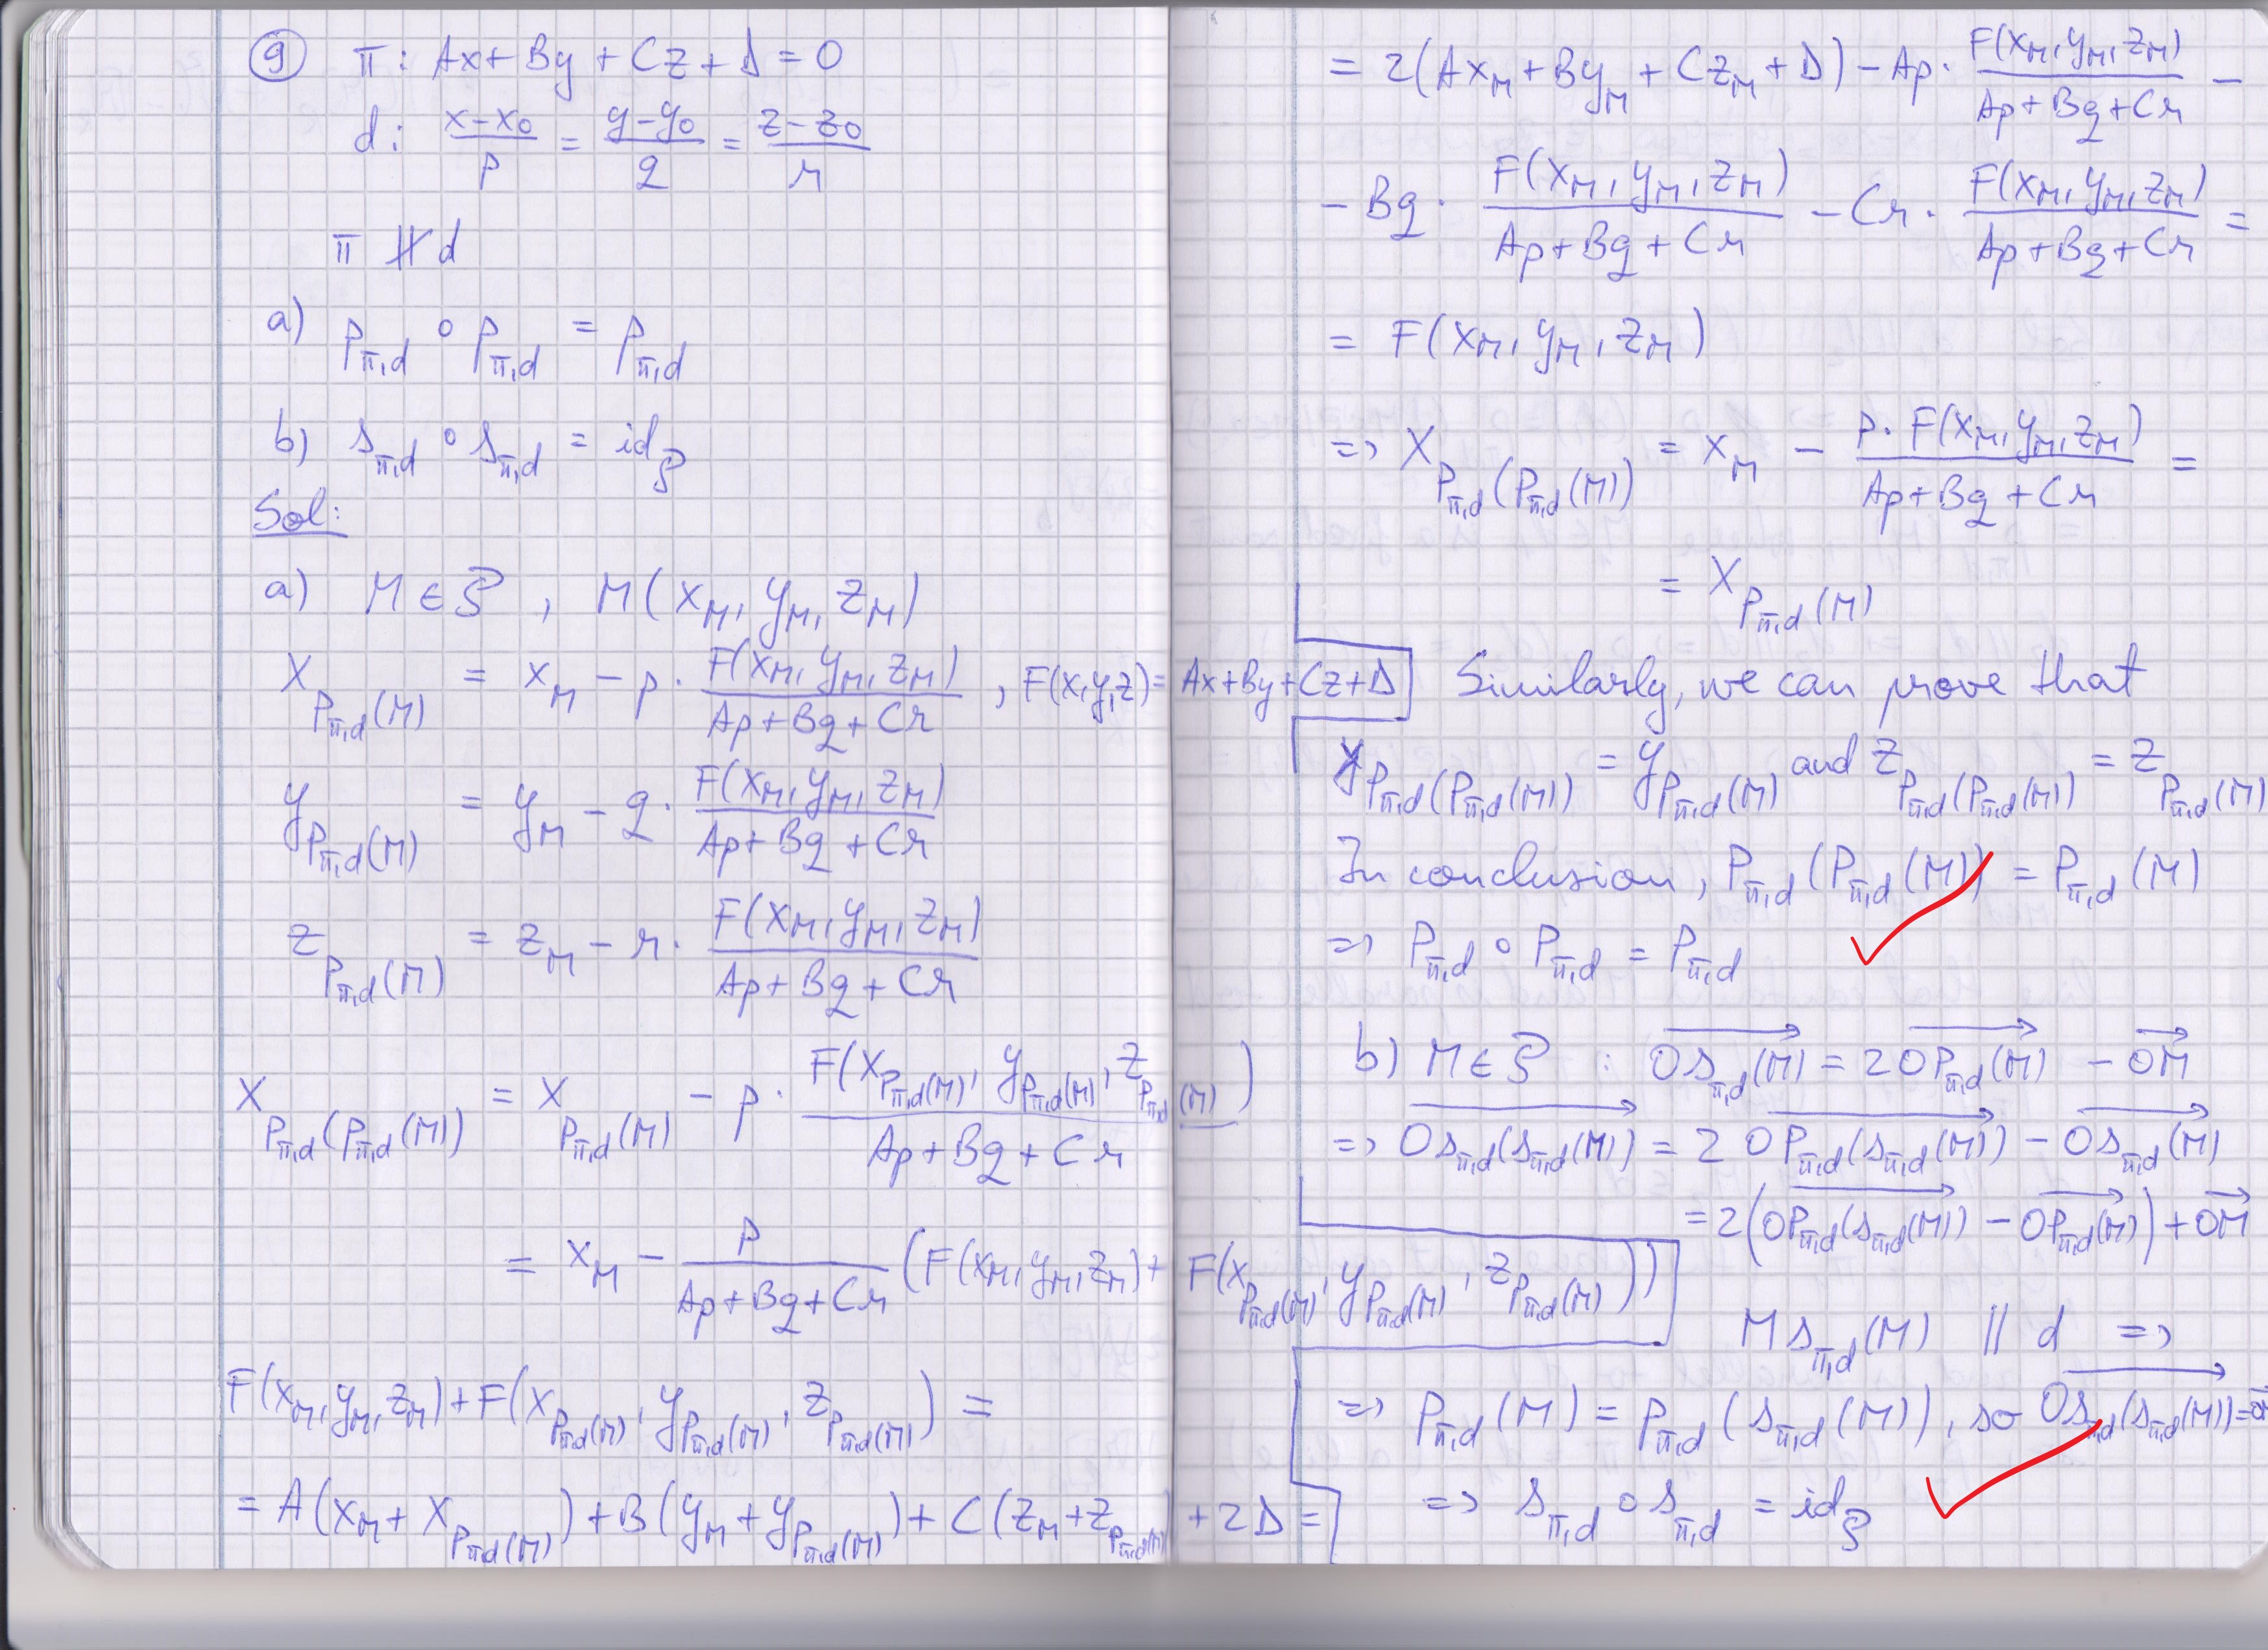 ⑨ π: Ax + By + Cz + D = 0
d: (x-x₀)/p = (y-y₀)/q = (z-z₀)/r
π ∦ d
a) p_{π,d} ∘ p_{π,d} = p_{π,d}
b) s_{π,d} ∘ s_{π,d} = id_𝒫
Sol:
a) M ∈ 𝒫, M(x_M, y_M, z_M)
x_{p_{π,d}(M)} = x_M - p · F(x_M, y_M, z_M)/(Ap+Bq+Cr), F(x,y,z) = Ax+By+Cz+D
y_{p_{π,d}(M)} = y_M - q · F(x_M, y_M, z_M)/(Ap+Bq+Cr)
z_{p_{π,d}(M)} = z_M - r · F(x_M, y_M, z_M)/(Ap+Bq+Cr)
x_{p_{π,d}(p_{π,d}(M))} = x_{p_{π,d}(M)} - p · F(x_{p_{π,d}(M)}, y_{p_{π,d}(M)}, z_{p_{π,d}(M)})/(Ap+Bq+Cr)
= x_M - p/(Ap+Bq+Cr) (F(x_M, y_M, z_M) + F(x_{p_{π,d}(M)}, y_{p_{π,d}(M)}, z_{p_{π,d}(M)}))
F(x_M, y_M, z_M) + F(x_{p_{π,d}(M)}, y_{p_{π,d}(M)}, z_{p_{π,d}(M)}) =
= A(x_M + x_{p_{π,d}(M)}) + B(y_M + y_{p_{π,d}(M)}) + C(z_M + z_{p_{π,d}(M)}) + 2D =
= 2(Ax_M + By_M + Cz_M + D) - Ap · F(x_M, y_M, z_M)/(Ap+Bq+Cr) -
- Bq · F(x_M, y_M, z_M)/(Ap+Bq+Cr) - Cr · F(x_M, y_M, z_M)/(Ap+Bq+Cr) =
= F(x_M, y_M, z_M)
=> x_{p_{π,d}(p_{π,d}(M))} = x_M - p · F(x_M, y_M, z_M)/(Ap+Bq+Cr) =
= x_{p_{π,d}(M)}
Similarly, we can prove that
y_{p_{π,d}(p_{π,d}(M))} = y_{p_{π,d}(M)} and z_{p_{π,d}(p_{π,d}(M))} = z_{p_{π,d}(M)}
In conclusion, p_{π,d}(p_{π,d}(M)) = p_{π,d}(M)
=> p_{π,d} ∘ p_{π,d} = p_{π,d}
b) M ∈ 𝒫 : \overrightarrow{Os_{π,d}(M)} = 2\overrightarrow{Op_{π,d}(M)} - \overrightarrow{OM}
=> \overrightarrow{Os_{π,d}(s_{π,d}(M))} = 2\overrightarrow{Op_{π,d}(s_{π,d}(M))} - \overrightarrow{Os_{π,d}(M)}
= 2(\overrightarrow{Op_{π,d}(s_{π,d}(M))} - \overrightarrow{Op_{π,d}(M)}) + \overrightarrow{OM}
Ms_{π,d}(M) ∥ d =>
=> p_{π,d}(M) = p_{π,d}(s_{π,d}(M)), so \overrightarrow{Os_{π,d}(s_{π,d}(M))} =
=> s_{π,d} ∘ s_{π,d} = id_𝒫